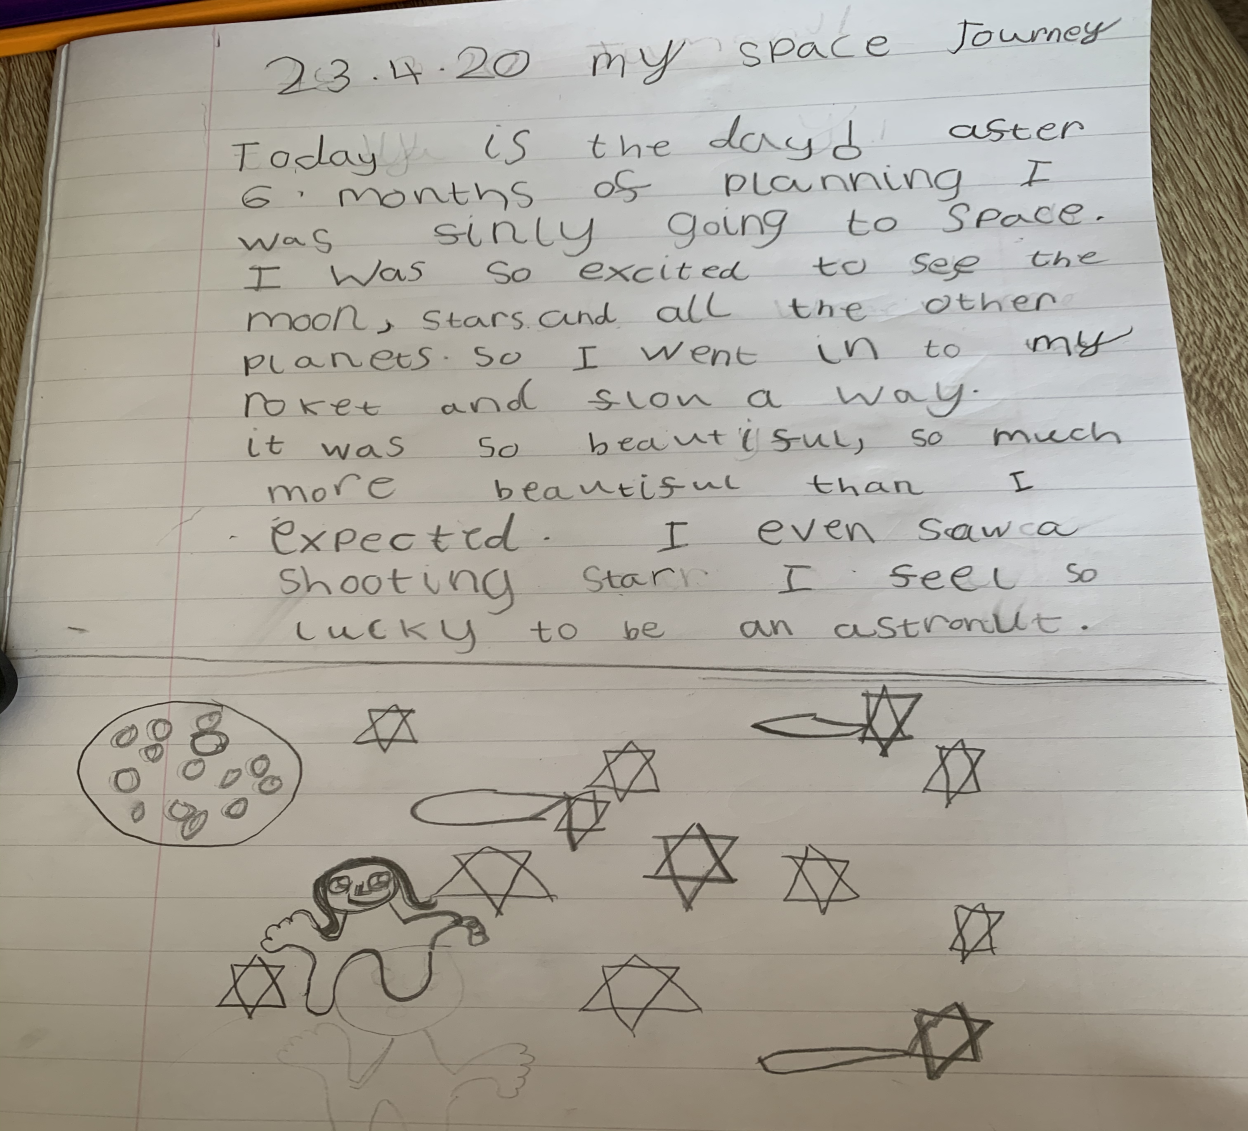 23.4.20 my space Journey
Today is the day! aster
6 months of planning I
was sinly going to space.
I was so excited to see the
moon, stars and all the other
planets. so I went in to my
roket and slon a way.
it was so beautiful, so much
more beautiful than I
expected. I even saw a
shooting star I feel so
lucky to be an astronUt.